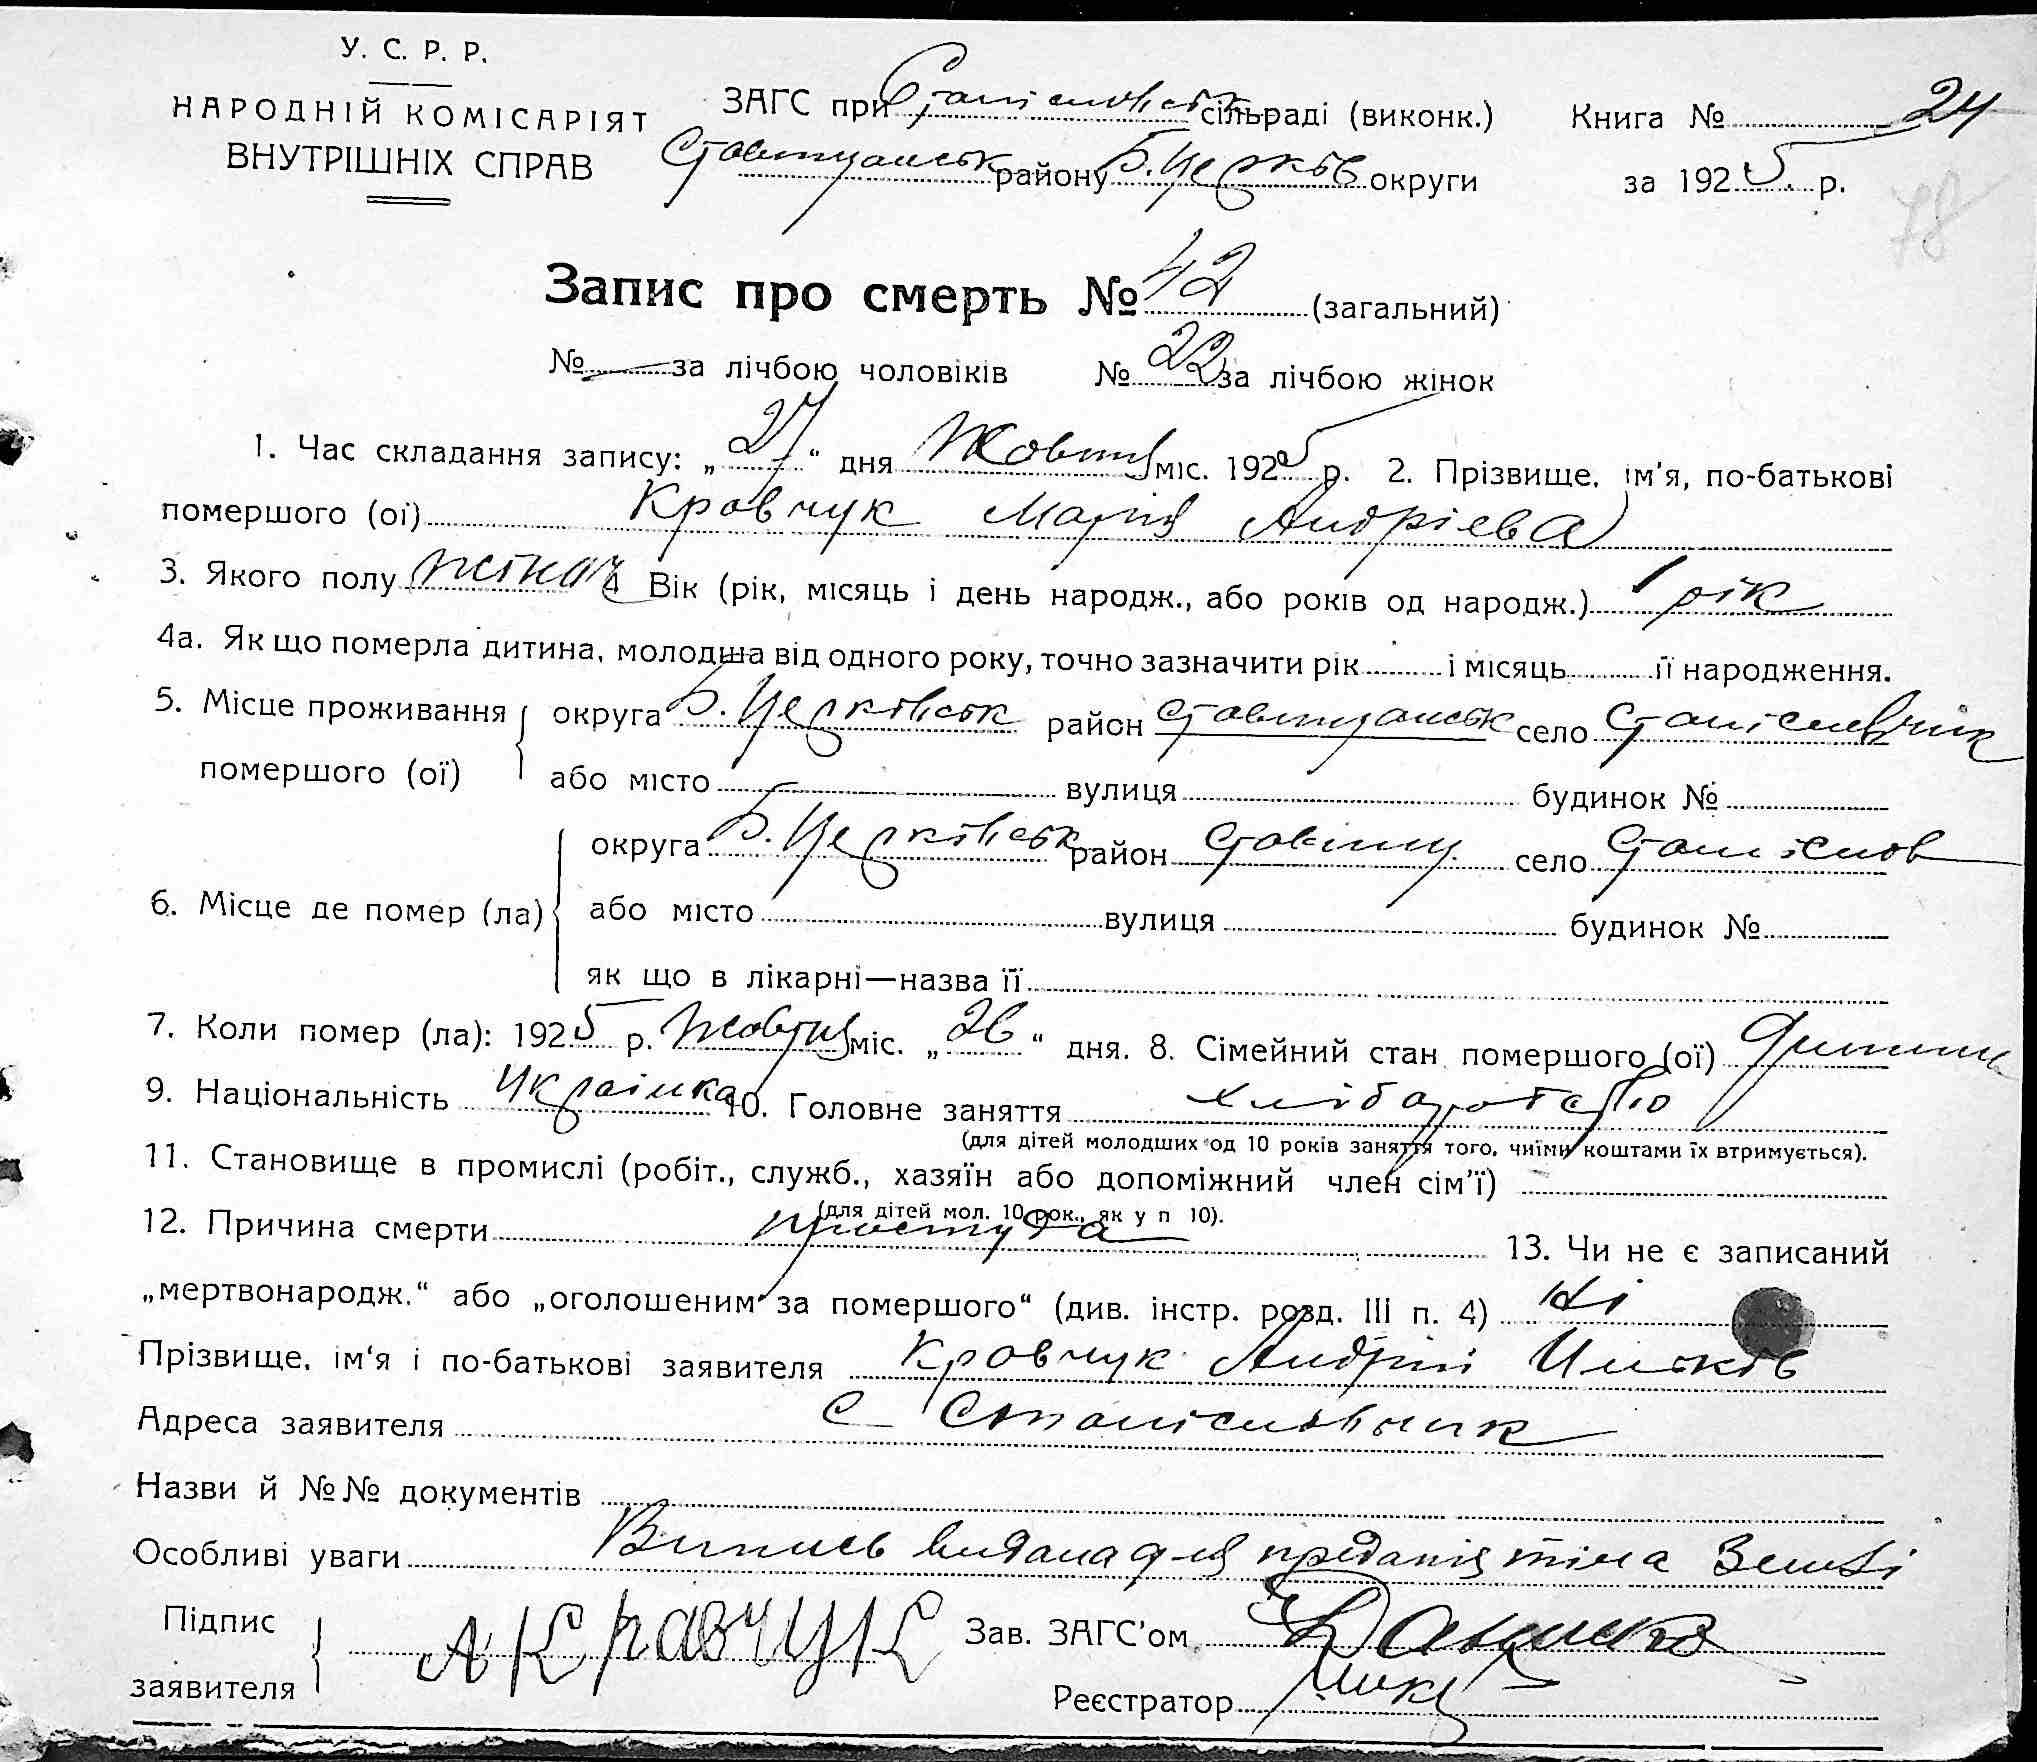 У. С. Р. Р.
НАРОДНІЙ КОМІСАРІЯТ
ВНУТРІШНІХ СПРАВ
ЗАГС при Станіславськ сільраді (виконк.) Книга № 24
Ставищанськ району Б. Церків округи за 1925 р.
78
Запис про смерть № 42 (загальний)
№ — за лічбою чоловіків № 22 за лічбою жінок
1. Час складання запису: „27“ дня Жовтня міс. 1925 р. 2. Прізвище, ім'я, по-батькові
помершого (ої) Кровчук Марія Андрієва
3. Якого полу жіноч 4 Вік (рік, місяць і день народж., або років од народж.) 1 рік
4а. Як що померла дитина, молодша від одного року, точно зазначити рік і місяць її народження.
5. Місце проживання помершого (ої) округа Б. Церківськ район Ставищанськ село Станіславчик
або місто вулиця будинок №
6. Місце де помер (ла) округа Б. Церківськ район Ставищ. село Станіслав
або місто вулиця будинок №
як що в лікарні—назва її
7. Коли помер (ла): 1925 р. Жовтня міс. „26“ дня. 8. Сімейний стан помершого (ої) Дитина
9. Національність Українка 10. Головне заняття хліборобство
(для дітей молодших од 10 років заняття того, чиїми коштами їх втримується).
11. Становище в промислі (робіт., служб., хазяїн або допоміжний член сім'ї)
(для дітей мол. 10 рок., як у п 10).
12. Причина смерти простуда 13. Чи не є записаний
„мертвонародж.“ або „оголошеним за помершого“ (див. інстр. розд. III п. 4) Ні
Прізвище, ім'я і по-батькові заявителя Кровчук Андрій Ильків
Адреса заявителя с Станіславчик
Назви й №№ документів
Особливі уваги Випись видана для преданія тіла Землі
Підпис заявителя А Кравчук Зав. ЗАГС'ом
Реєстратор